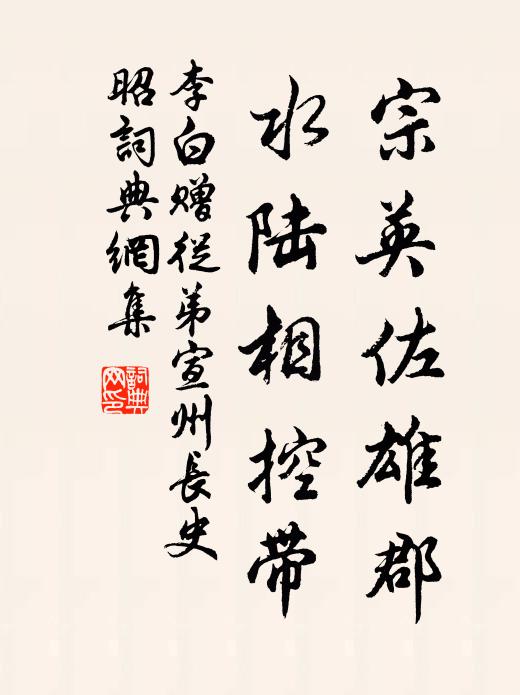 宗英佐雄郡
水陆相控带
李白赠從弟宣州長史
昭詞典網集
詞典
网印